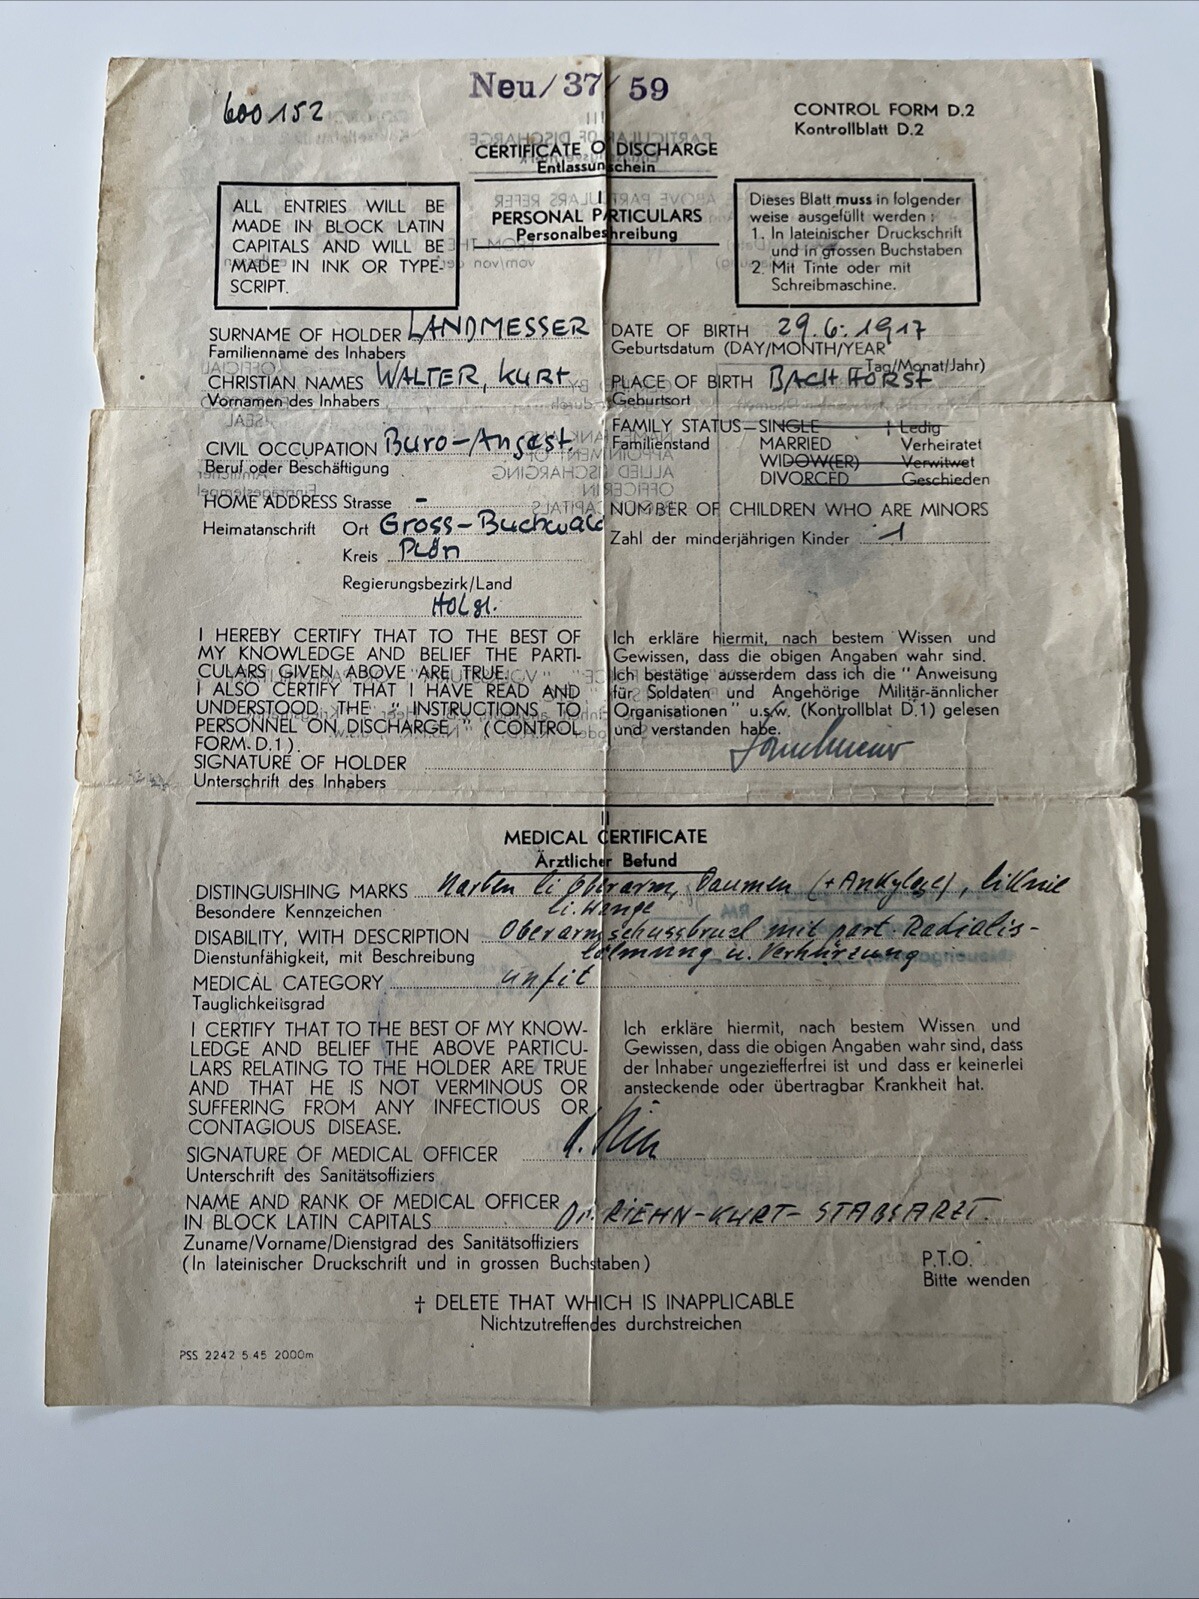 Neu/37/59
600152
CONTROL FORM D.2
Kontrollblatt D.2
CERTIFICATE O DISCHARGE
Entlassun schein
ALL ENTRIES WILL BE
MADE IN BLOCK LATIN
CAPITALS AND WILL BE
MADE IN INK OR TYPE-
SCRIPT.
I
PERSONAL PARTICULARS
Personalbeschreibung
Dieses Blatt muss in folgender
weise ausgefüllt werden :
1. In lateinischer Druckschrift
und in grossen Buchstaben
2. Mit Tinte oder mit
Schreibmaschine.
SURNAME OF HOLDER LANDMESSER
Familienname des Inhabers
CHRISTIAN NAMES WALTER, KURT
Vornamen des Inhabers
CIVIL OCCUPATION Büro-Angest.
Beruf oder Beschäftigung
HOME ADDRESS Strasse -
Heimatanschrift Ort Gross-Buchwald
Kreis Plön
Regierungsbezirk/Land
Holst.
DATE OF BIRTH 29.6.1917
Geburtsdatum (DAY/MONTH/YEAR
Tag/Monat/Jahr)
PLACE OF BIRTH BACHHORST
Geburtsort
FAMILY STATUS—SINGLE † Ledig
Familienstand MARRIED Verheiratet
WIDOW(ER) Verwitwet
DIVORCED Geschieden
NUMBER OF CHILDREN WHO ARE MINORS
Zahl der minderjährigen Kinder 1
I HEREBY CERTIFY THAT TO THE BEST OF
MY KNOWLEDGE AND BELIEF THE PARTI-
CULARS GIVEN ABOVE ARE TRUE.
I ALSO CERTIFY THAT I HAVE READ AND
UNDERSTOOD THE " INSTRUCTIONS TO
PERSONNEL ON DISCHARGE " (CONTROL
FORM D.1).
SIGNATURE OF HOLDER
Unterschrift des Inhabers
Ich erkläre hiermit, nach bestem Wissen und
Gewissen, dass die obigen Angaben wahr sind.
Ich bestätige ausserdem dass ich die " Anweisung
für Soldaten und Angehörige Militär-ännlicher
Organisationen " u.s.w. (Kontrollblat D.1) gelesen
und verstanden habe.
II
MEDICAL CERTIFICATE
Ärztlicher Befund
DISTINGUISHING MARKS Narben li Oberarm, Daumen (+Ankylose), li Knie
Besondere Kennzeichen li. Wange
DISABILITY, WITH DESCRIPTION Oberarmschussbruch mit part. Radialis-
Dienstunfähigkeit, mit Beschreibung lähmung u. Verkürzung
MEDICAL CATEGORY unfit
Tauglichkeitsgrad
I CERTIFY THAT TO THE BEST OF MY KNOW-
LEDGE AND BELIEF THE ABOVE PARTICU-
LARS RELATING TO THE HOLDER ARE TRUE
AND THAT HE IS NOT VERMINOUS OR
SUFFERING FROM ANY INFECTIOUS OR
CONTAGIOUS DISEASE.
Ich erkläre hiermit, nach bestem Wissen und
Gewissen, dass die obigen Angaben wahr sind, dass
der Inhaber ungeziefferfrei ist und dass er keinerlei
ansteckende oder übertragbar Krankheit hat.
SIGNATURE OF MEDICAL OFFICER
Unterschrift des Sanitätsoffiziers
NAME AND RANK OF MEDICAL OFFICER
IN BLOCK LATIN CAPITALS Dr. RIEHN-KURT- STABSARZT.
Zuname/Vorname/Dienstgrad des Sanitätsoffiziers
(In lateinischer Druckschrift und in grossen Buchstaben)
P.T.O.
Bitte wenden
† DELETE THAT WHICH IS INAPPLICABLE
Nichtzutreffendes durchstreichen
PSS 2242 5.45 2000m